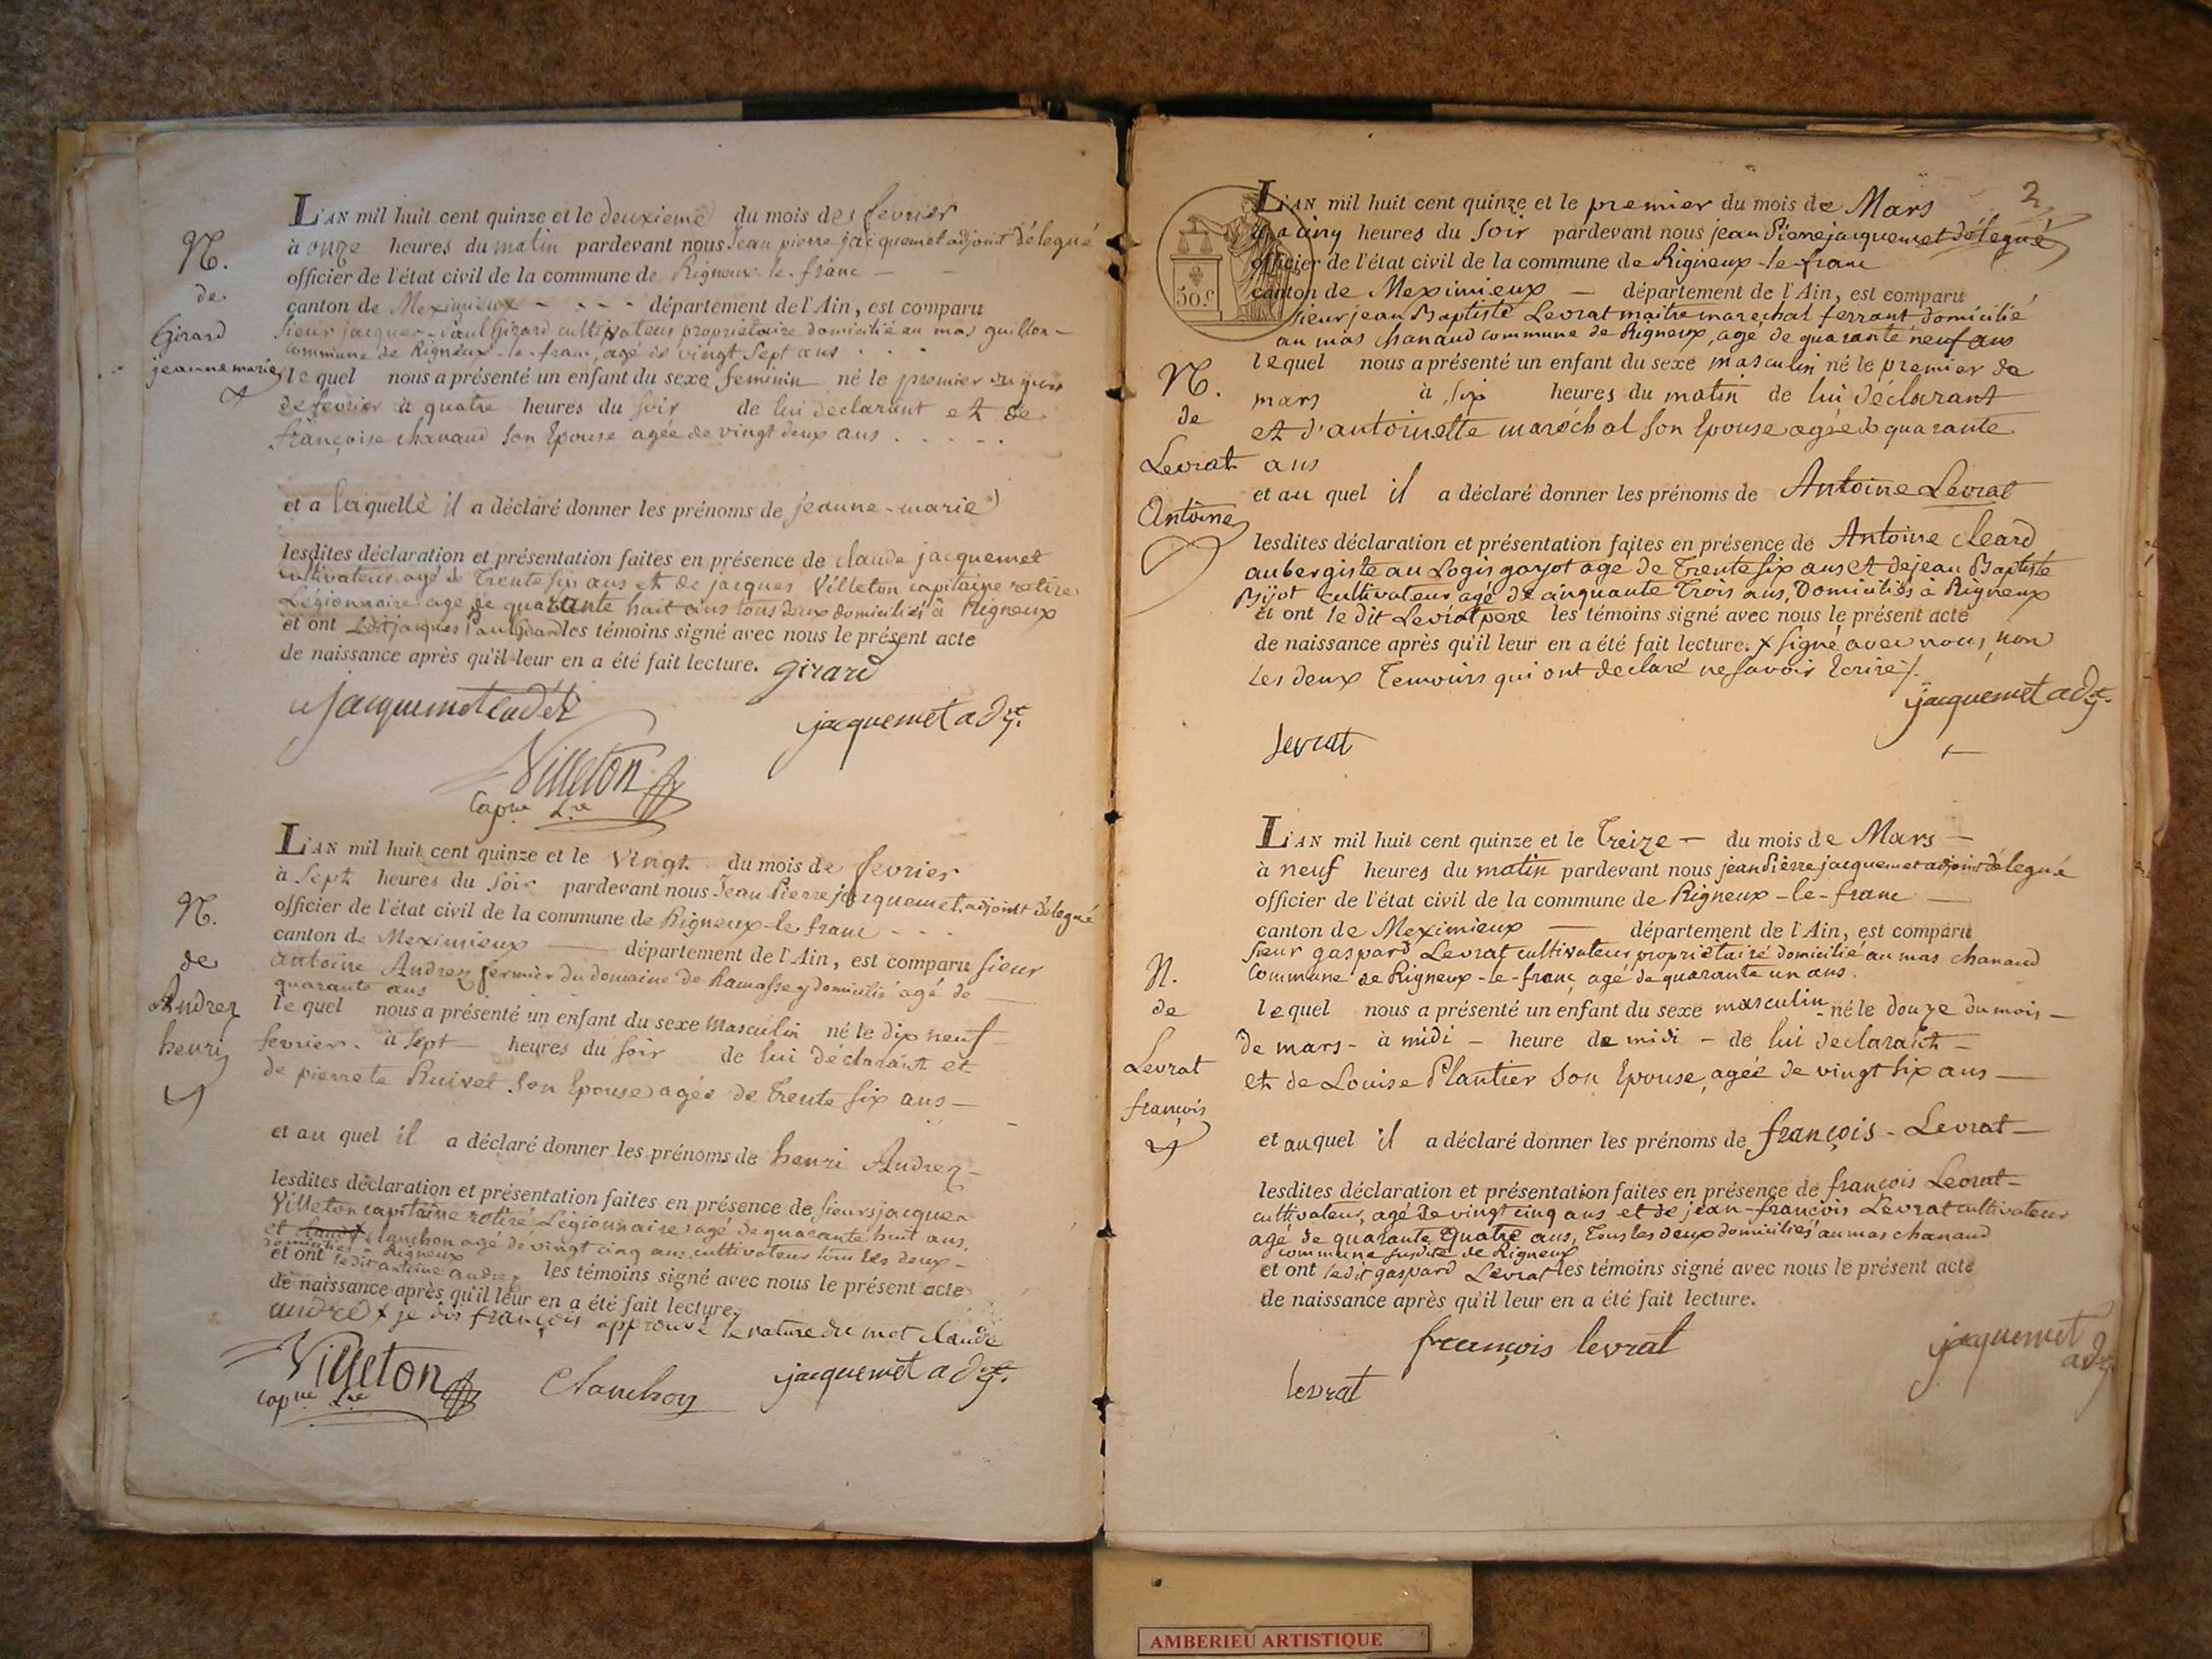 N.
de
Girard
jeanne marie
L'AN mil huit cent quinze et le deuxieme du mois des fevrier
à onze heures du matin pardevant nous Jean pierre jacquemet adjoint délegué
officier de l'état civil de la commune de Rigneux-le-franc
canton de Meximieux département de l'Ain, est comparu
sieur jacques-Paul Girard cultivateur proprietaire domicilié au mas guillon
commune de Rigneux-le-franc, agé de vingt sept ans
lequel nous a présenté un enfant du sexe feminin né le premier du mois
de fevrier à quatre heures du soir de lui declarant et de
françoise chanaud son Epouse agée de vingt deux ans
et a laquelle il a déclaré donner les prénoms de jeanne-marie
lesdites déclaration et présentation faites en présence de claude jacquemet
cultivateur agé de trente six ans et de jacques Villeton capitaine retiré
Légionnaire agé de quarante huit ans tous deux domiciliés à Rigneux
et ont Ledit jacques Paul Girard les témoins signé avec nous le présent acte
de naissance après qu'il leur en a été fait lecture. girard
jacquemet cadet
jacquemet adjt.
Villeton
Capne Lre
N.
de
Andrez
henri
L'AN mil huit cent quinze et le vingt du mois de fevrier
à sept heures du soir pardevant nous Jean Pierre jacquemet adjoint délegué
officier de l'état civil de la commune de Rigneux-le-franc
canton de Meximieux département de l'Ain, est comparu sieur
antoine Andrez fermier du domaine de Ramassey domicilié agé de
quarante ans
lequel nous a présenté un enfant du sexe masculin né le dix neuf
fevrier à sept heures du soir de lui déclarant et
de pierrete Ruivet son Epouse agée de trente six ans
et au quel il a déclaré donner les prénoms de henri Andrez
lesdites déclaration et présentation faites en présence de sieurs jacques
Villeton capitaine retiré Légionnaire agé de quarante huit ans
et clanchon agé de vingt cinq ans cultivateur tous les deux
domiciliés à Rigneux
et ont ledit antoine andrez les témoins signé avec nous le présent acte
de naissance après qu'il leur en a été fait lecture.
andré x je dis françois approuvé la rature du mot claude
Villeton
capne Lre
Clanchon
jacquemet adjt.
2
50.c
N.
de
Levrat
Antoine
L'AN mil huit cent quinze et le premier du mois de Mars
à cinq heures du soir pardevant nous jean Pierre jacquemet délegué
officier de l'état civil de la commune de Rigneux-le-franc
canton de Meximieux département de l'Ain, est comparu
sieur jean Baptiste Levrat maitre marechal ferrant domicilié
au mas chanaud commune de Rigneux, agé de quarante neuf ans
lequel nous a présenté un enfant du sexe masculin né le premier de
mars à six heures du matin de lui déclarant
et d'antoinette maréchal son Epouse agée de quarante
ans
et au quel il a déclaré donner les prénoms de Antoine Levrat
lesdites déclaration et présentation faites en présence de Antoine cleard
aubergiste au Logis gayot agé de trente six ans et de jean Baptiste
Bijot cultivateur agé de cinquante trois ans, Domiciliés à Rigneux
et ont le dit Levrat pere les témoins signé avec nous le présent acte
de naissance après qu'il leur en a été fait lecture. x signé avec nous, non
les deux temoins qui ont declaré ne savoir Ecrire /.
jacquemet adjt.
levrat
N.
de
Levrat
françois
L'AN mil huit cent quinze et le treize du mois de Mars
à neuf heures du matin pardevant nous jean Pierre jacquemet adjoint délegué
officier de l'état civil de la commune de Rigneux-le-franc
canton de Meximieux département de l'Ain, est comparu
sieur gaspard Levrat cultivateur proprietaire domicilié au mas chanaud
Commune de Rigneux-le-franc agé de quarante un ans.
lequel nous a présenté un enfant du sexe masculin né le douze du mois
de mars à midi heure de midi de lui declarant
et de Louise Plantier son Epouse, agée de vingt six ans
et auquel il a déclaré donner les prénoms de françois-Levrat
lesdites déclaration et présentation faites en présence de françois Levrat
cultivateur, agé de vingt cinq ans et de jean-françois Levrat cultivateur
agé de quarante Quatre ans, tous les deux domiciliés au mas chanaud
commune susdite de Rigneux
et ont ledit gaspard Levrat les témoins signé avec nous le présent acte
de naissance après qu'il leur en a été fait lecture.
françois levrat
jacquemet
adjt
levrat
AMBERIEU ARTISTIQUE